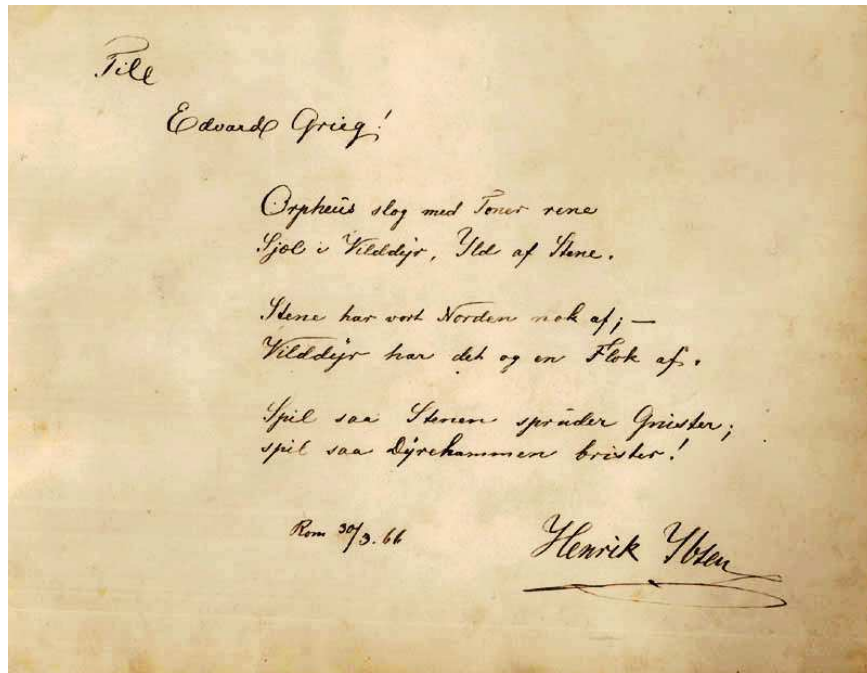 Till
Edvard Grieg!
Orpheus slog med Toner rene
Sjæl i Vilddyr, Ild af Stene.
Stene har vort Norden nok af; —
Vilddyr har det og en Flok af.
Spil saa Stenen spruder Gnister;
spil saa Dyrehammen brister!
Rom 30/3. 66
Henrik Ibsen